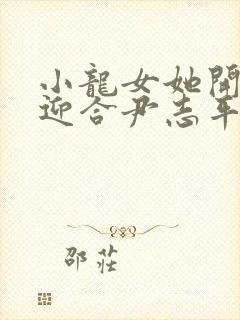 小龍女她開
迎合尹志平
邵莊